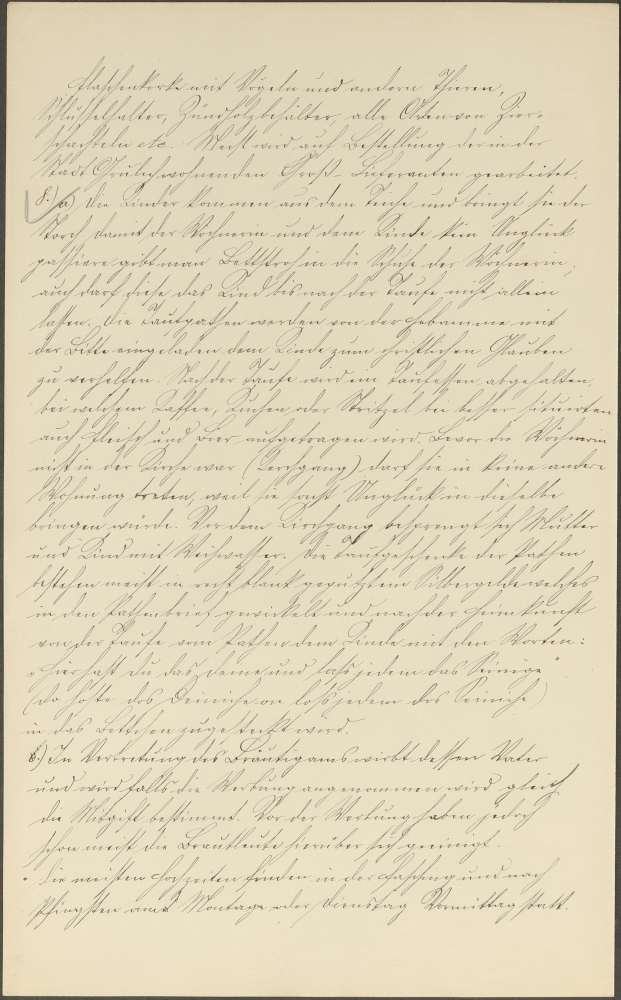 Flaschenkorke mit Vögeln und andern Thieren,
Schlüsselhalter, Zündholzbehälter, alle Arten von Zier-
schachteln etc. Meist wird auf Bestellung der in der
Stadt Grulich wohnenden Groß-Lieferanten gearbeitet.
8.) a) Die Kinder kommen aus dem Teiche und bringt sie der
Storch, damit der Wöchnerin und dem Kinde kein Unglück
passiere gibt man Bettstroh in die Schuhe der Wöchnerin,
auch darf diese das Kind bis nach der Taufe nicht allein
lassen. Die Taufpathen werden von der Hebamme mit
der Bitte eingeladen dem Kinde zum christlichen Glauben
zu verhelfen. Nach der Taufe wird ein Taufessen abgehalten,
bei welchem Kaffee, Kuchen oder Stritzel bei besser situirten
auch Fleisch und Bier aufgetragen wird. Bevor die Wöchnerin
nicht in der Kirche war (Kerchgang) darf sie in keine andere
Wohnung treten, weil sie sonst Unglück in dieselbe
bringen würde. Vor dem Kirchgang besprengt sich Mutter
und Kind mit Weihwasser. Die Taufgeschenke der Pathen
bestehen meist in recht blank geputztem Silbergelde welches
in den Pathenbrief gewickelt und nach der Heimkunft
von der Taufe vom Pathen dem Kinde mit den Worten:
"Hier hast du das deine und lass jedem das Seinige"
(Do hoste dos Deiniche on loß jedem dos Seiniche)
in das Bettchen zugesteckt wird.
b.) In Vertretung des Bräutigams wirbt dessen Vater
und wird falls die Werbung angenommen wird gleich
die Mitgift bestimmt. Vor der Werbung haben jedoch
schon meist die Brautleute hierüber sich geeinigt.
Die meisten Hochzeiten finden in der Fasching und nach
Pfingsten am Montage oder Dienstag Vormittag statt.